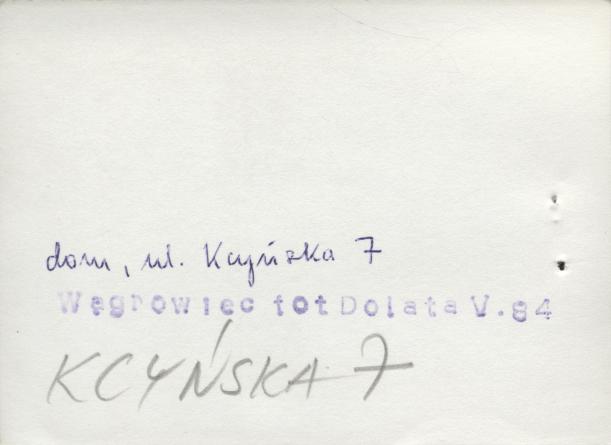 dom, ul. Kcyńska 7
Węgrowiec fot Dolata V.84
KCYŃSKA 7